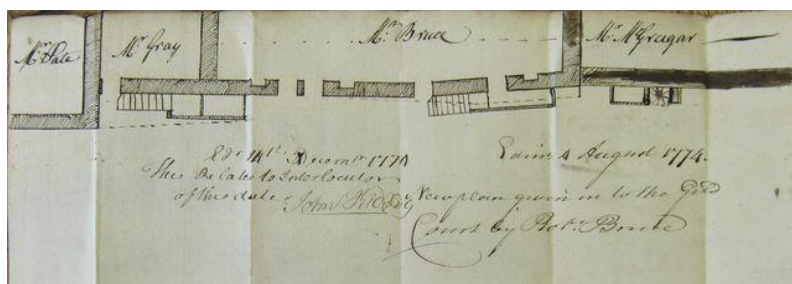 Mr. Tate
Mr. Gray
Mr. Bruce
Mr. McGreigar
Edr. 14th Decemr 1774
This Relates to Interlocutor
of this date
Edinr 4 August 1774.
New plan given in to the Gild
Court by Robt. Bruce